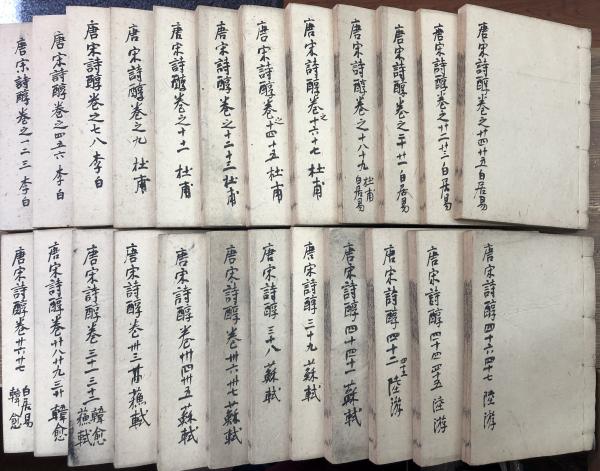 唐宋詩醇卷之一二三 李白
唐宋詩醇卷之四五六 李白
唐宋詩醇卷之七八 李白
唐宋詩醇卷之九 杜甫
唐宋詩醇卷之十十一 杜甫
唐宋詩醇卷之十二十三 杜甫
唐宋詩醇卷之十四十五 杜甫
唐宋詩醇卷之十六十七 杜甫
唐宋詩醇卷之十八十九 杜甫 白居易
唐宋詩醇卷之二十廿一 白居易
唐宋詩醇卷之廿二廿三 白居易
唐宋詩醇卷之廿四廿五 白居易
唐宋詩醇卷廿六廿七 白居易 韓愈
唐宋詩醇卷廿八廿九三十 韓愈
唐宋詩醇卷三十一三十二 韓愈 蘇軾
唐宋詩醇卷卅三 蘇軾
唐宋詩醇卷卅四卅五 蘇軾
唐宋詩醇卷卅六卅七 蘇軾
唐宋詩醇三十八 蘇軾
唐宋詩醇三十九 蘇軾
唐宋詩醇四十四十一 蘇軾
唐宋詩醇四十二 四十三 陸游
唐宋詩醇四十四四十五 陸游
唐宋詩醇四十六四十七 陸游